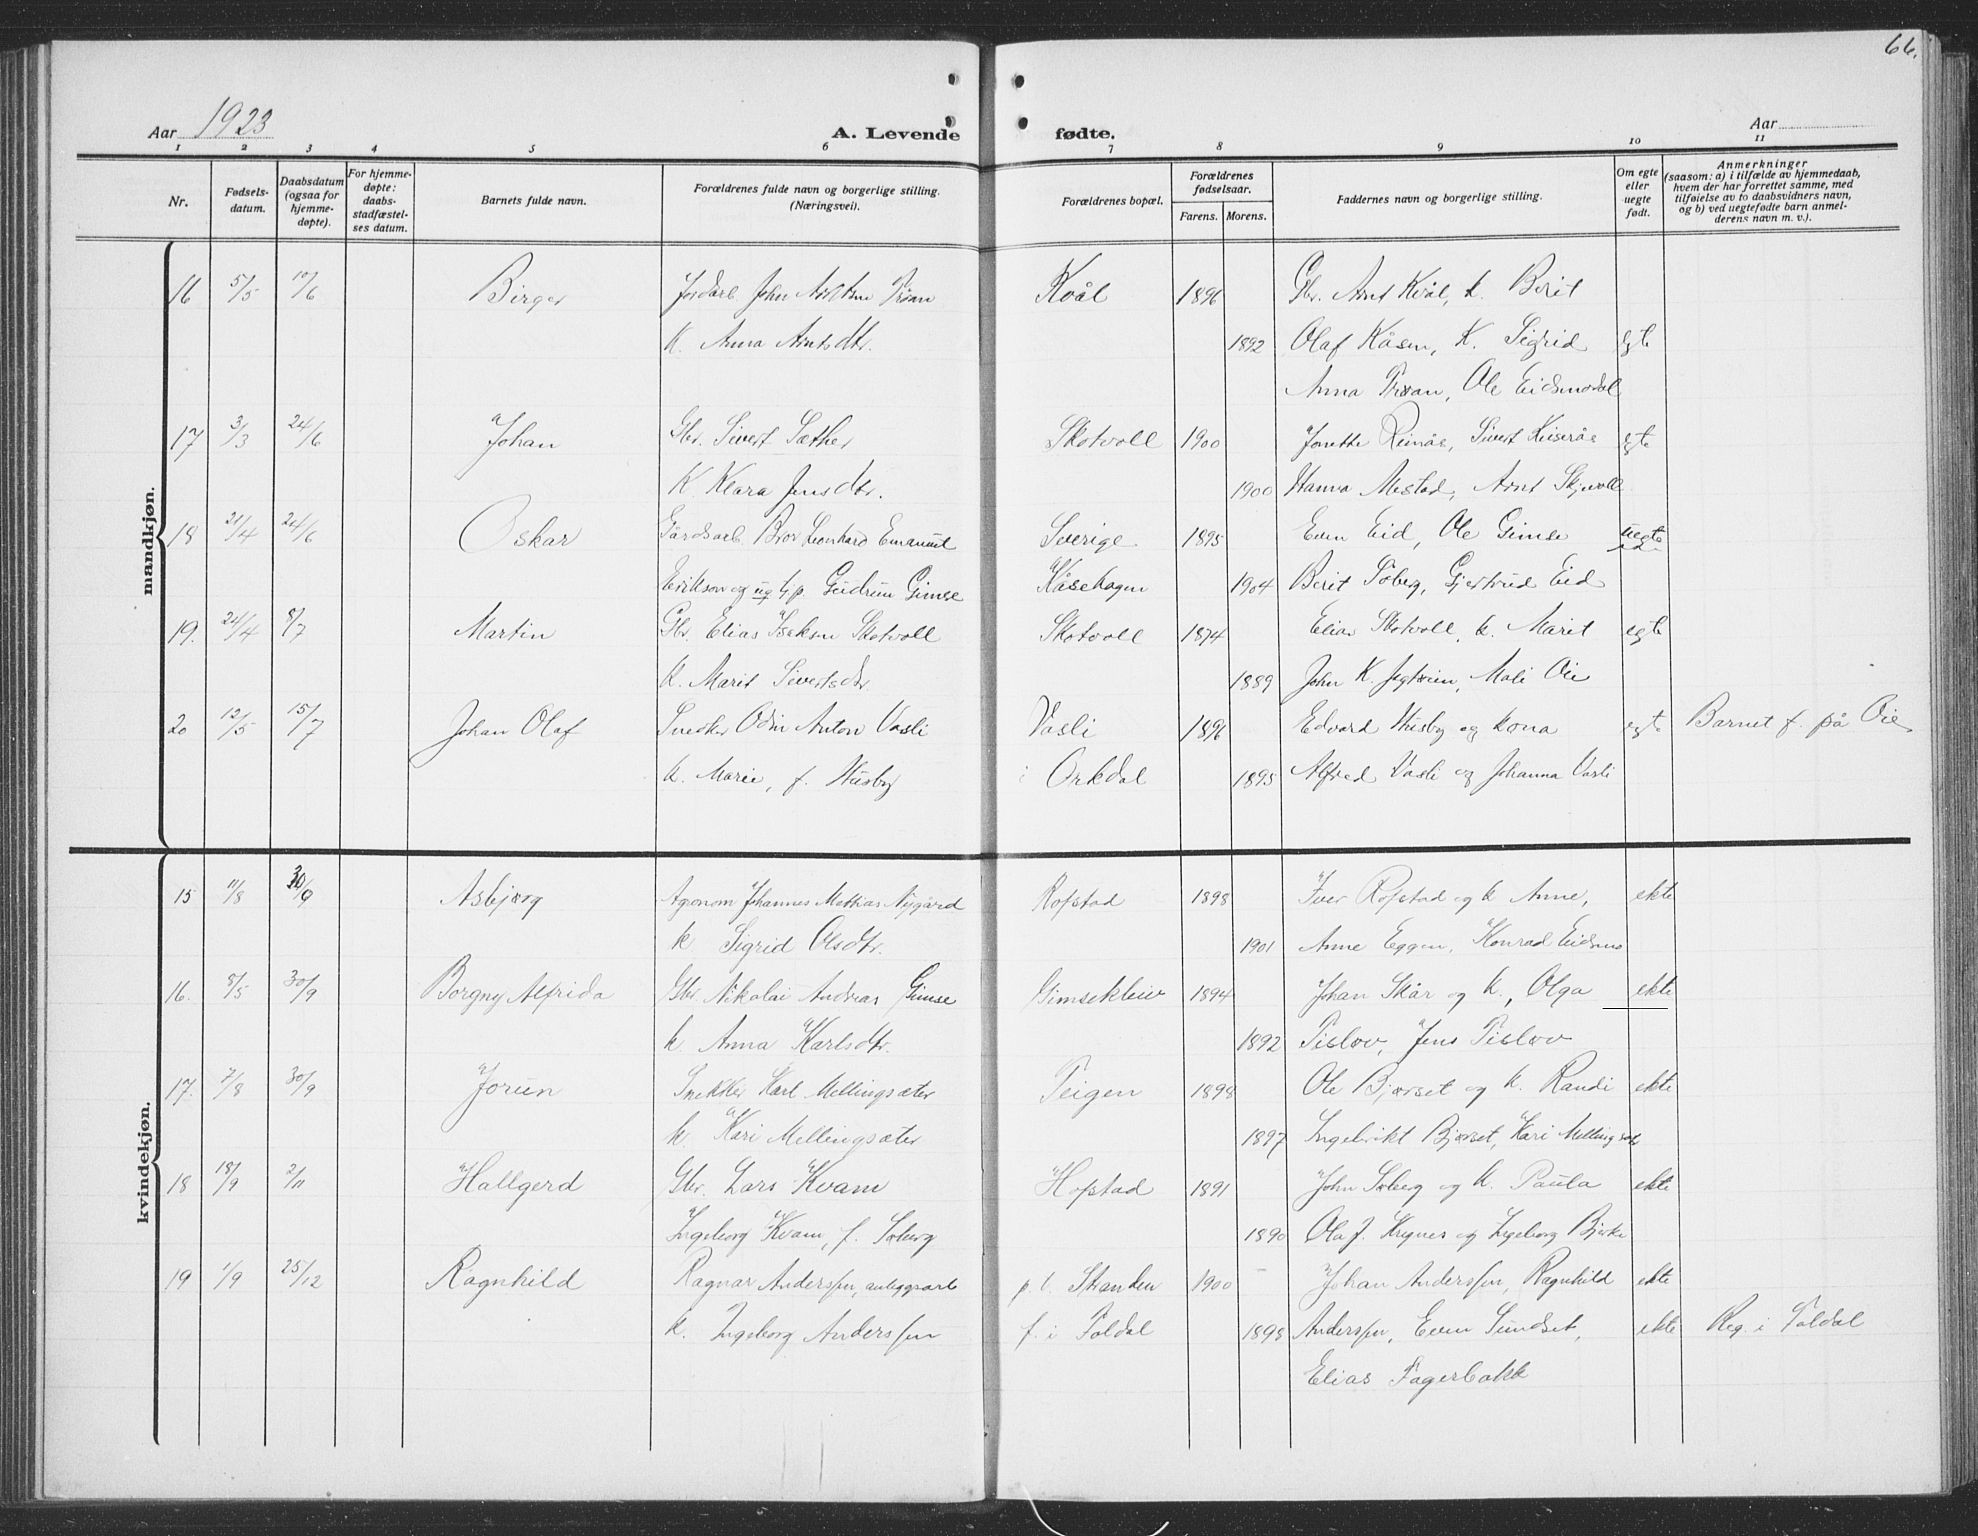 66.
Aar 1923
A. Levende fødte.
Aar
1 2 3 4 5 6 7 8 9 10 11
Nr.
Fødselsdatum.
Daabsdatum (ogsaa for hjemmedøpte).
For hjemmedøpte: daabsstadfæstelses datum.
Barnets fulde navn.
Forældrenes fulde navn og borgerlige stilling. (Næringsvei).
Forældrenes bopæl.
Forældrenes fødselsaar.
Farens. Morens.
Faddernes navn og borgerlige stilling.
Om egte eller uegte født.
Anmerkninger (saasom: a) i tilfælde av hjemmedaab, hvem der har forrettet samme, med tilføielse av to daabsvidners navn, og b) ved uegtefødte barn anmelderens navn m. v.).
mandkjøn.
16 5/5 10/6 Birger Jordarb. John Trøan Kvål 1896 Gbr. Arnt Kvål, k. Berit
k. Anna Arntsdtr. 1892 Olaf Kåsen, k. Sigrid egte
Anna Trøan, Ole Eidsmodal
17 3/3 24/6 Johan Gbr. Sivert Sæther Skotvoll 1900 Jonette Reinås, Sivert egte
K. Klara Jensdtr. 1900 Hanna Mestad, Arnt Skjevoll
18 21/4 24/6 Oskar Gårdsarb. Bror Leonhard Emanuel Sverige 1895 Even Eid, Ole Gimse uegte
Erikson og ug. Gudrun Gimse Kåsehagen 1904 Berit Søberg, Gjertrud Eid
19. 24/4 8/7 Martin Gbr. Elias Iseksen Skotvoll Skotvoll 1874 Elias Skotvoll, k. Marit egte
k. Marit Sivertsdtr. 1889 John K. Jagtøien, Mali Øie
20 12/5 15/7 Johan Olaf Snedker Odin Anton Vasli Vasli 1896 Edvard Husby og kona egte Barnet f. på Øie
k. Marie, f. Husby i Orkdal 1895 Alfred Vasli og Johanna Vasli
kvindekjøn.
15 11/8 30/9 Asbjørg Agronom Johannes Mathias Nygård Rofstad 1898 Iver Rofstad og k Anne, ekte
k Sigrid Olsdtr. 1901 Anne Eggen, Konrad Eidsmo
16. 8/5 30/9 Borgny Alfrida Gbr. Nikolai Andreas Gimse Gimsekleiv 1894 Johan Skår og k., Olga ekte
k. Anna Karlsdtr. 1892 Tislov, Jens Tislov
17. 7/8 30/9 Jorun Snekker Karl Mellingsæter Teigen 1898 Ole Bjørset og k. Randi ekte
k. Kari Mellingsæter 1897 Ingebrikt Bjørset, Kari Mellingsæt
18 18/9 2/11 Hallgerd Gbr. Lars Kvam Hofstad 1891 John Søberg og k. Paula ekte
Ingeborg Kvam, f. Søberg 1890 Ola J. Krignes og Ingeborg Bjerke
19 1/9 25/12 Ragnhild Ragnar Anderssen, anleggsarb p. t. Stranden 1900 Johan Anderssen, Ragnhild ekte
k. Ingeborg Anderssen f. i Foldal 1898 Anderssen, Even Sundset, ekte Reg. i Foldal
Elias Fagerbakk